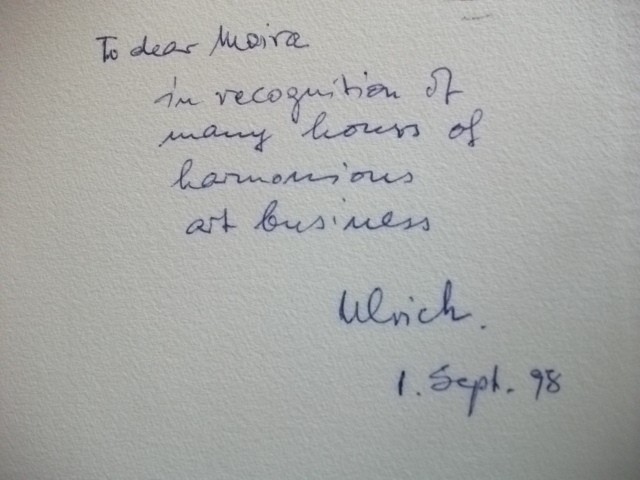 To dear Moira
in recognition of
many hours of
harmonious
art business
Ulrich.
1. Sept. 98